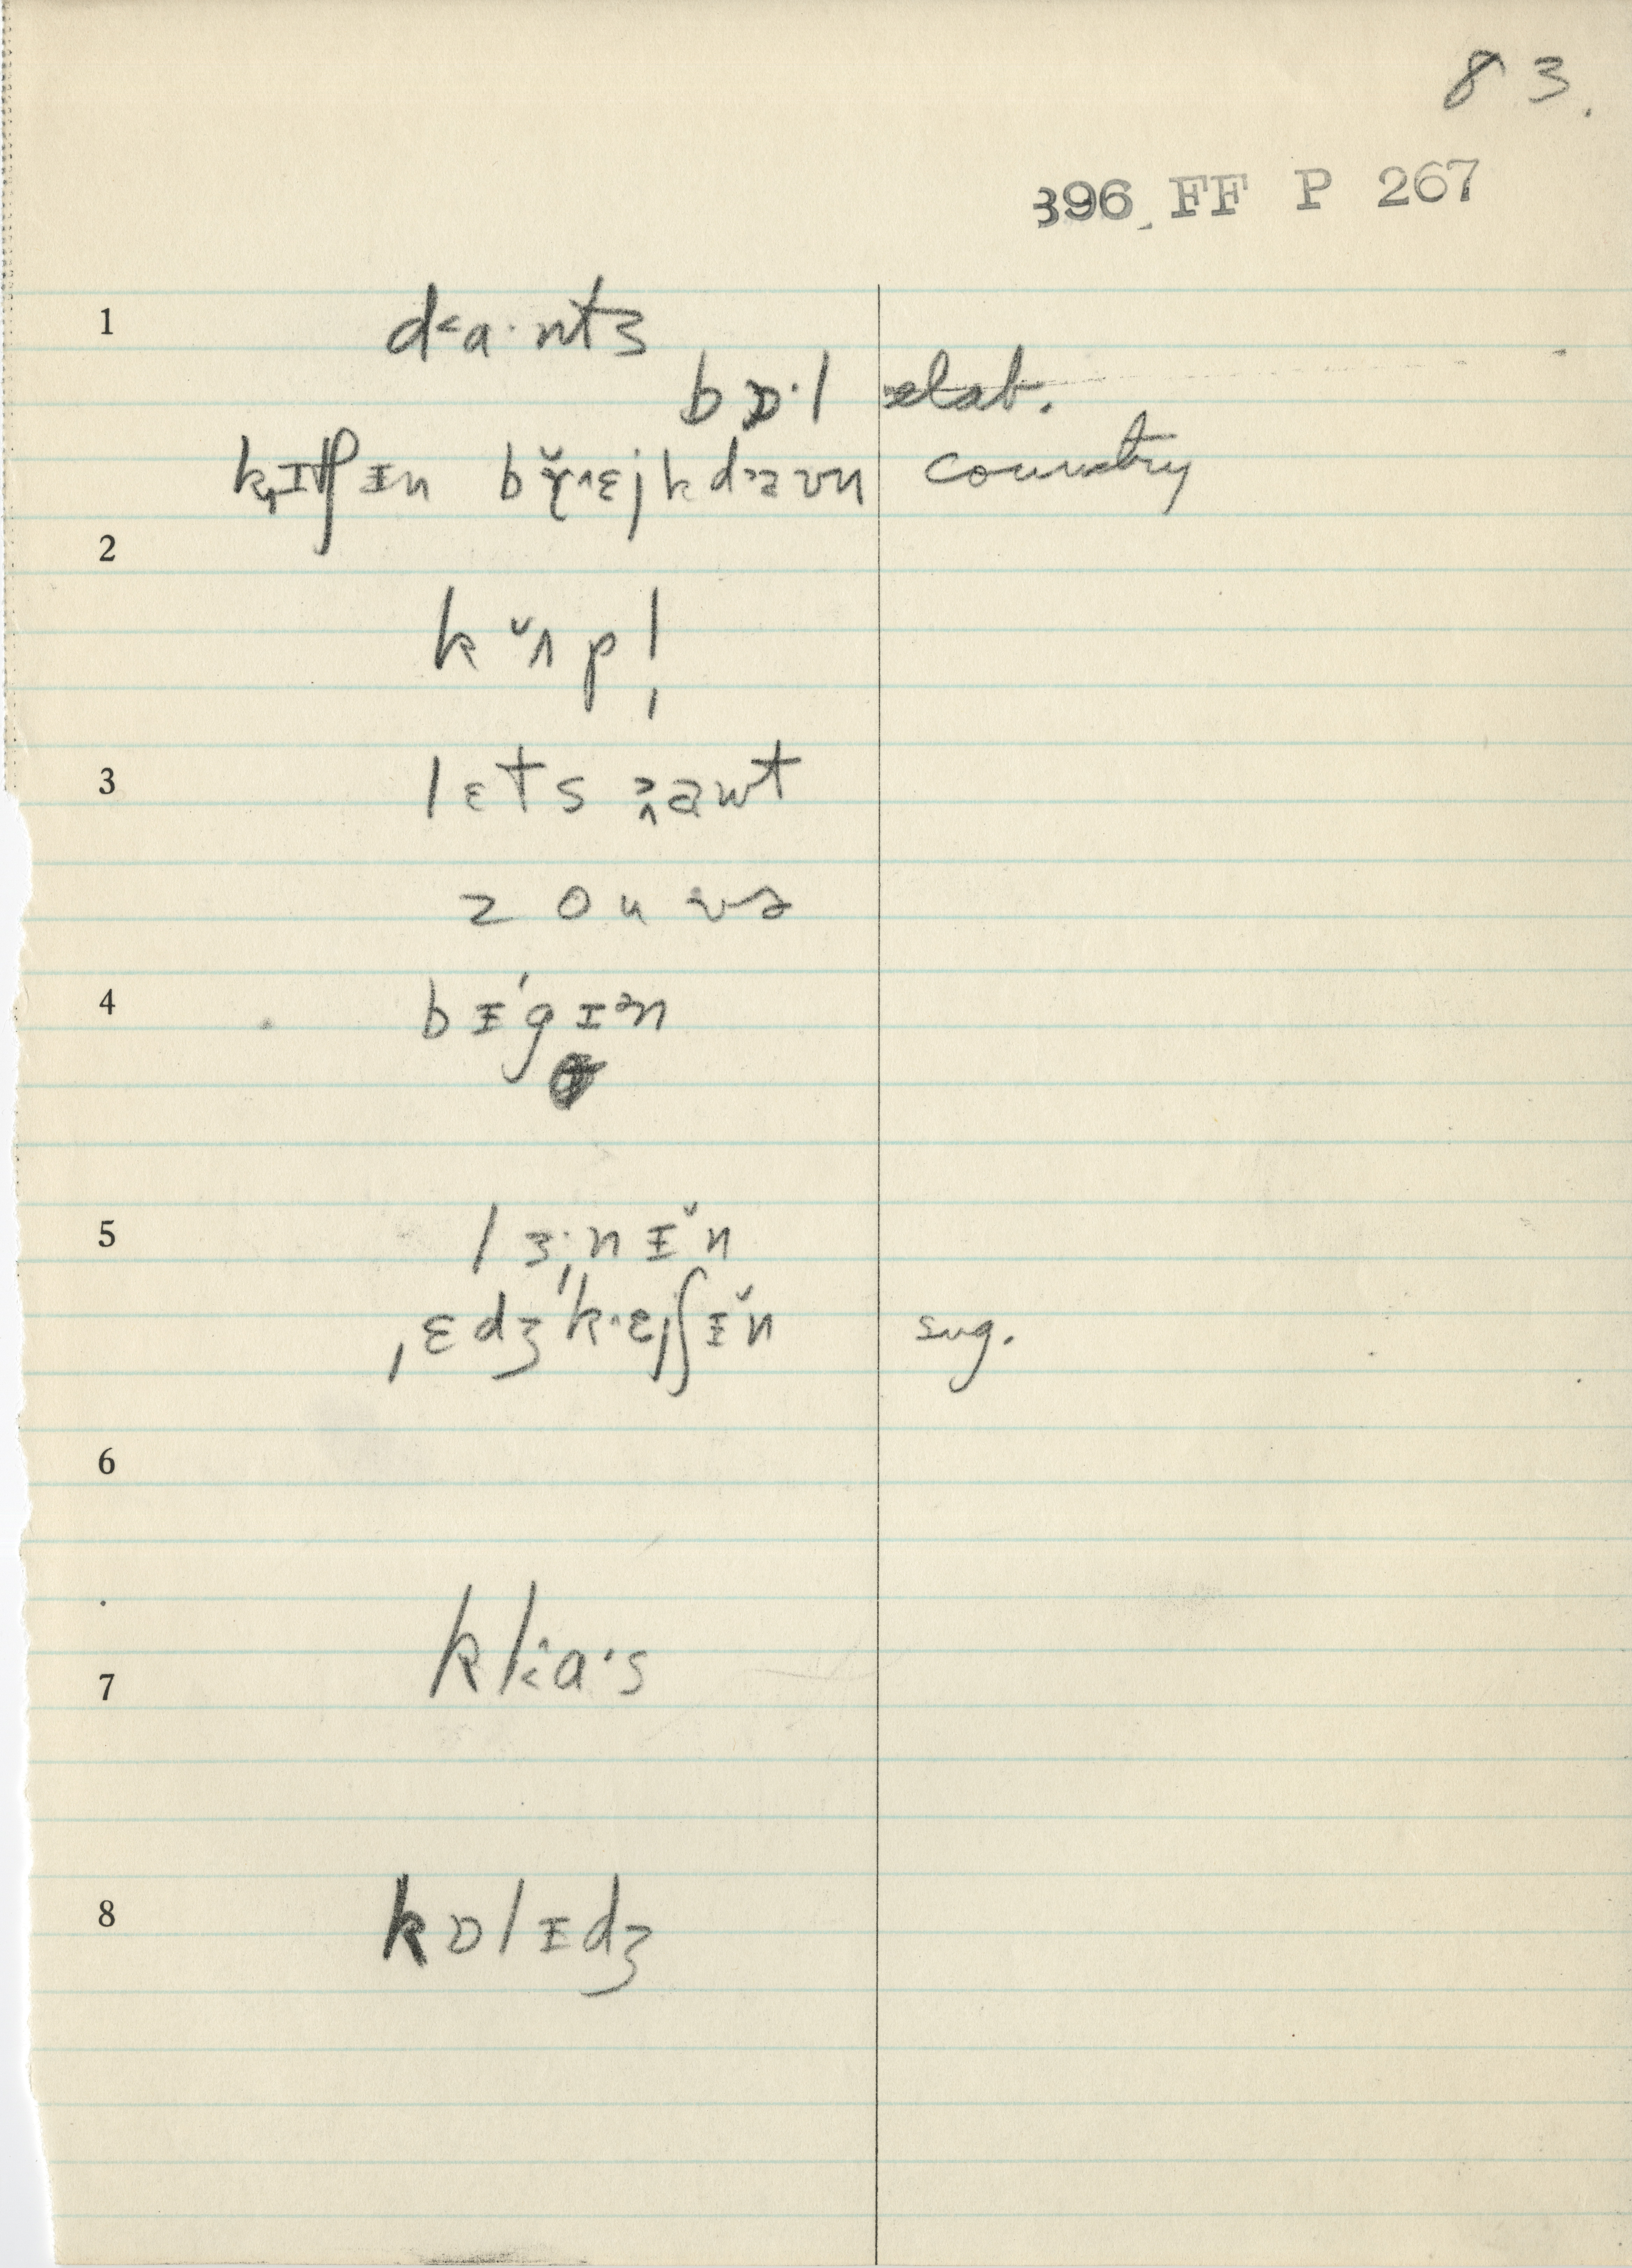 83.
396 FF P 267
1 d˂a·nts
bɒ·l elab.
kɪtʃɪn bɤ̆˄ɛjkda˃ʊn country
2
kʌ̆pl̩
3 lɛts awt
z o u və
4 bɪ'gɪən
5 lɜ·nɪ̆n
ˌɛdʒ'k˄ɛjʃɪ̆n sug.
6
7 kl˂a·s
8 kɒlɪdʒ